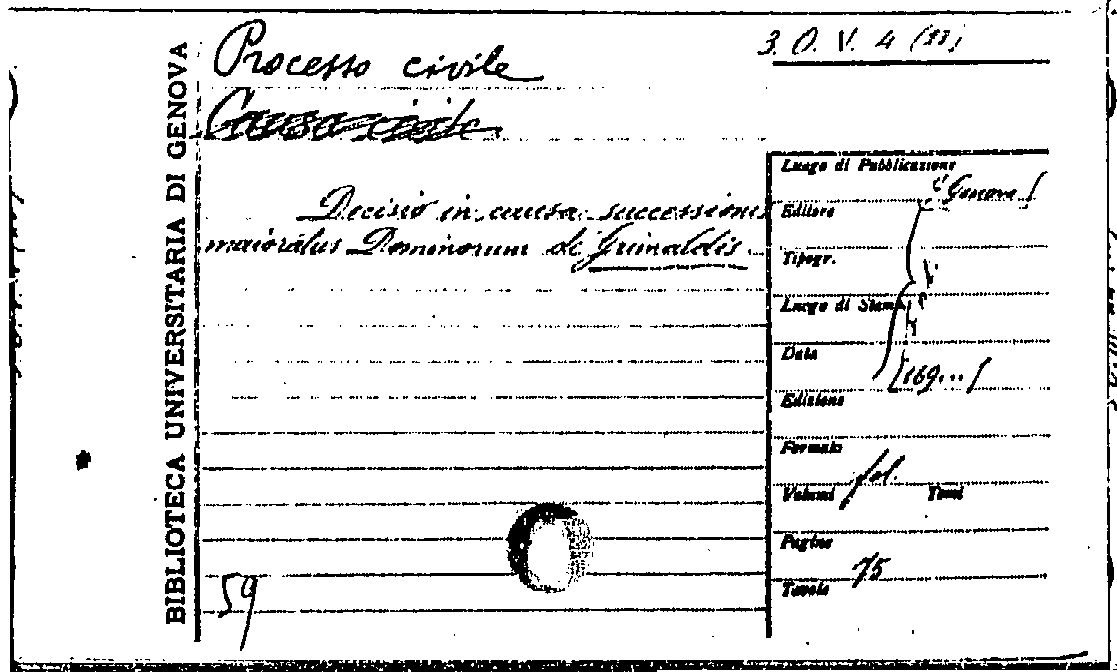 BIBLIOTECA UNIVERSITARIA DI GENOVA
3. O. V. 4 (23)
Processo civile
Causa civile
Decisio in causa successionis
maioratus Dominorum de Grimaldis
Luogo di Pubblicazione
[Genova]
Editore
Tipogr.
Luogo di Stampa
Data
[169...]
Edizione
Formato
fol.
Volumi Tomi
Pagine
75
Tavole
59